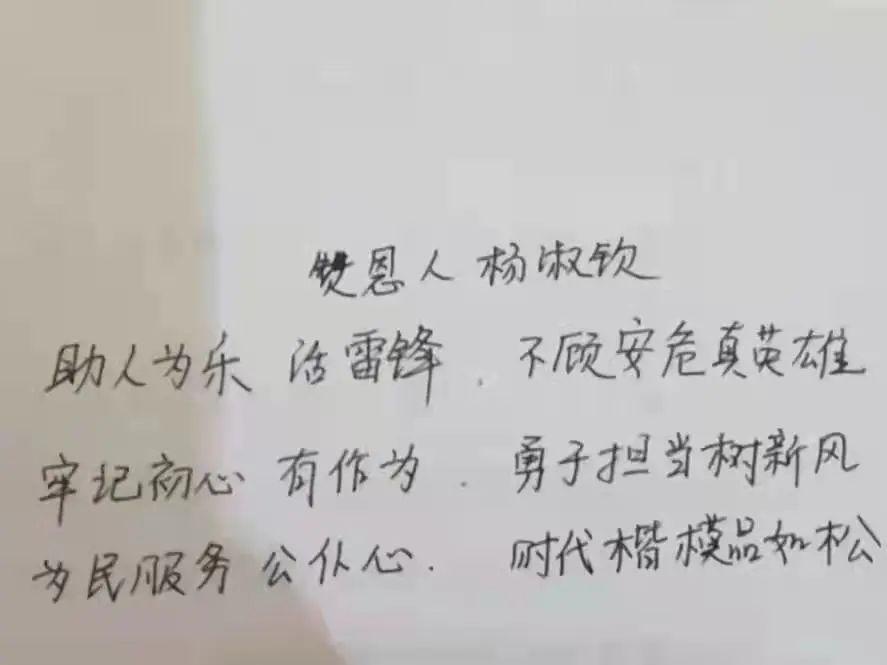 赞恩人 杨淑钦
助人为乐 活雷锋. 不顾安危真英雄
牢记初心 有作为. 勇于担当树新风
为民服务 公仆心. 时代楷模品如松